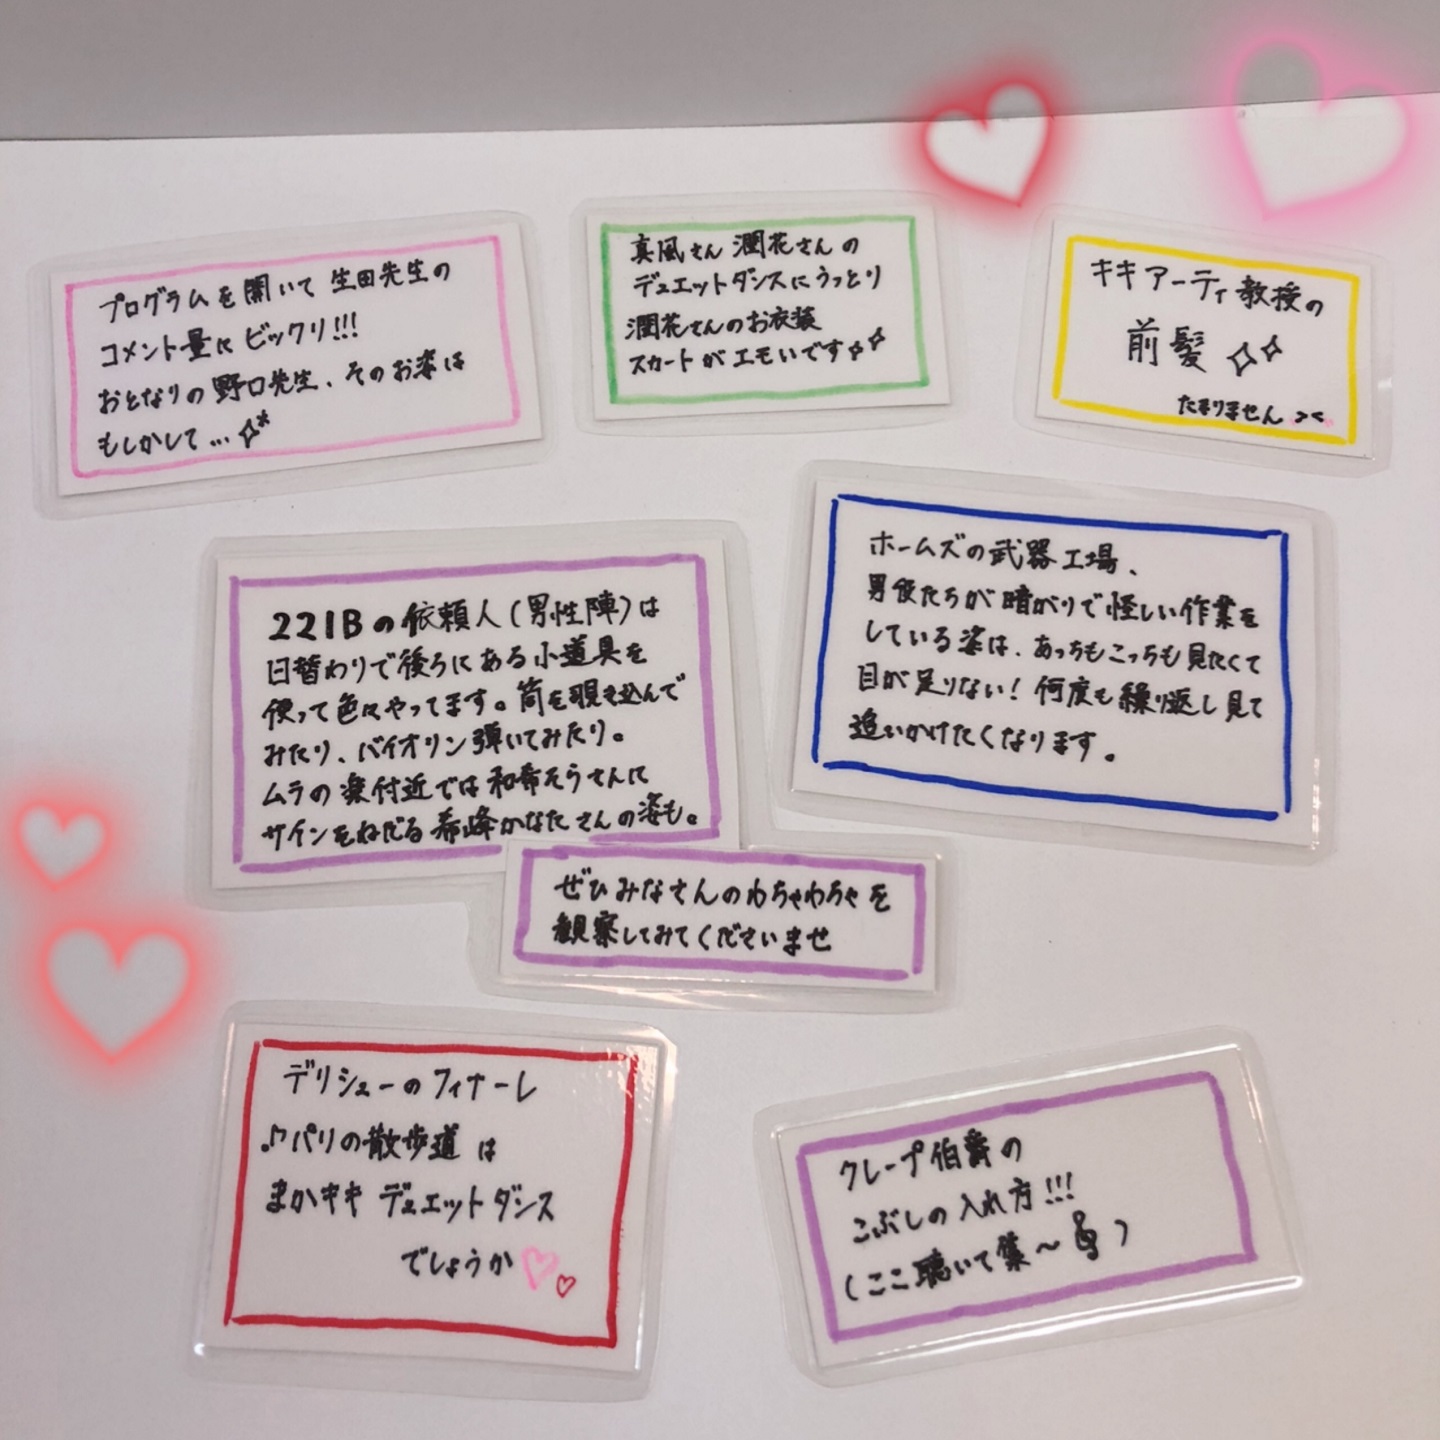 プログラムを開いて生田先生の
コメント量にビックリ!!!
おとなりの野口先生、そのお姿は
もしかして…
真風さん 潤花さんの
デュエットダンスにうっとり
潤花さんのお衣装
スカートがエモいです
キキアーティ教授の
前髪
たまりません ><
221Bの依頼人(男性陣)は
日替わりで後ろにある小道具を
使って色々やってます。筒を覗き込んで
みたり、バイオリン弾いてみたり。
ムラの楽付近では和希そらさんに
サインをねだる希峰かなたさんの姿も。
ぜひみなさんのわちゃわちゃを
観察してみてくださいませ
ホームズの武器工場、
男役たちが暗がりで怪しい作業を
している姿は、あっちもこっちも見たくて
目が足りない! 何度も繰り返し見て
追いかけたくなります。
デリシューのフィナーレ
♪パリの散歩道 は
まかキキ デュエットダンス
でしょうか
クレープ伯爵の
こぶしの入れ方!!!
(ここ聴いて集〜)